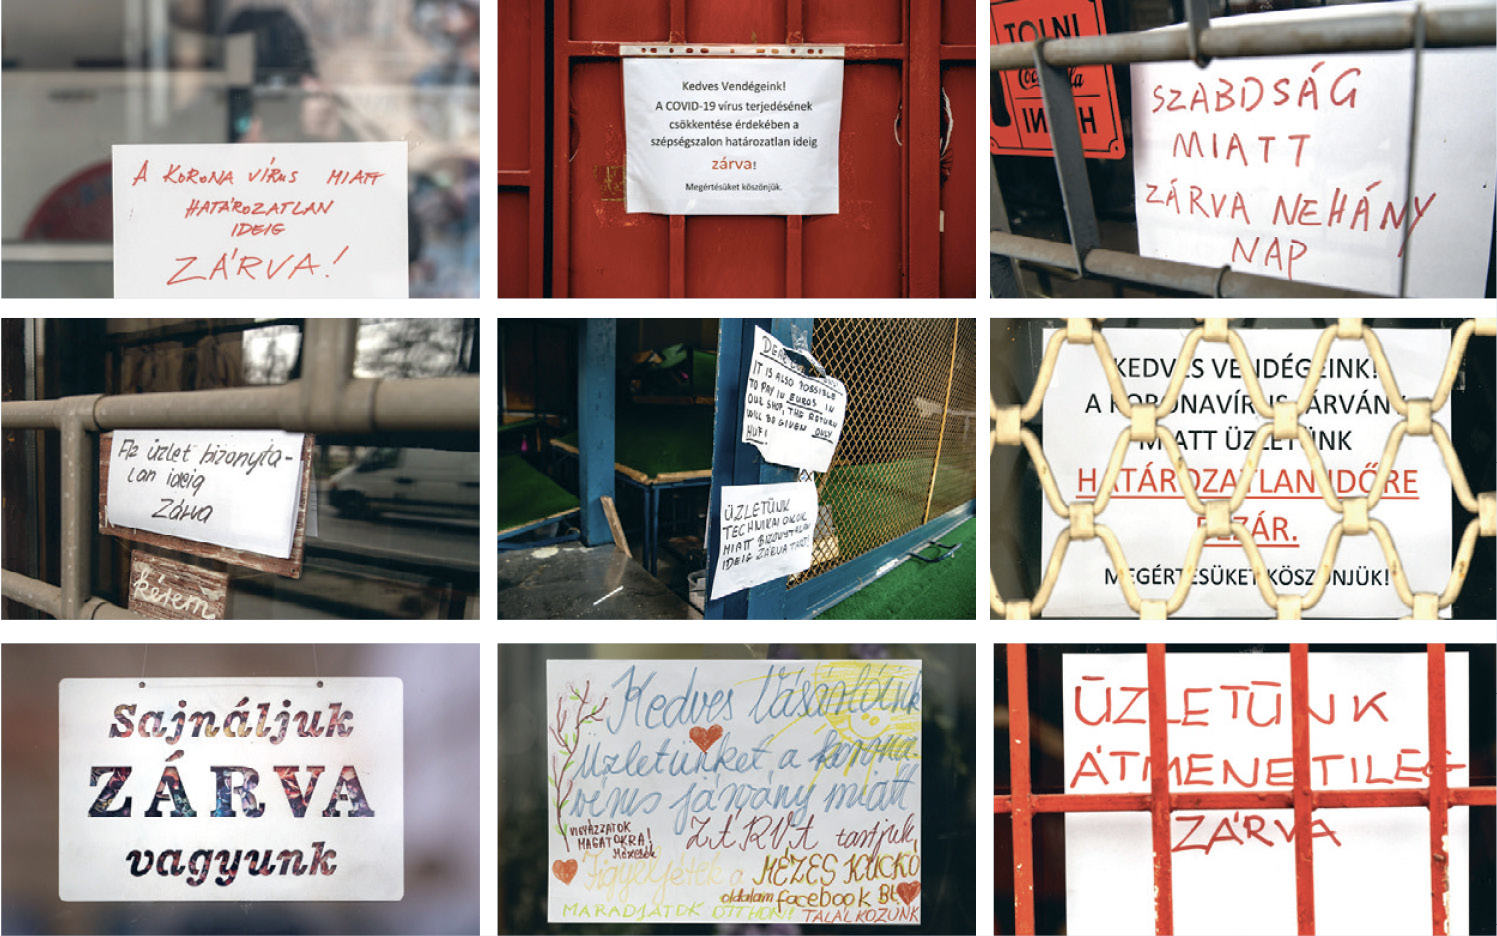 A KORONA VÍRUS MIATT
HATÁROZATLAN
IDEIG
ZÁRVA!
Kedves Vendégeink!
A COVID-19 vírus terjedésének
csökkentése érdekében a
szépségszalon határozatlan ideig
zárva!
Megértésüket köszönjük.
TOLNI
Coca-Cola
HÚZNI
SZABDSÁG
MIATT
ZÁRVA NEHÁNY
NAP
Az üzlet bizonyta-
lan ideig
Zárva
Kérem
DEAR
IT IS ALSO POSSIBLE
TO PAY IN EUROS IN
OUR SHOP, THE RETURN
WILL BE GIVEN ONLY
HUF!
ÜZLETÜNK
TECHNIKAI OKOK
MIATT BIZONYTALAN
IDEIG ZÁRVA TART!
KEDVES VENDÉGEINK!
A KORONAVÍRUS JÁRVÁNY
MIATT ÜZLETÜNK
HATÁROZATLAN IDŐRE
BEZÁR.
MEGÉRTÉSÜKET KÖSZÖNJÜK!
Sajnáljuk
ZÁRVA
vagyunk
Kedves Vásárlóink
Üzletünket a korona
vírus járvány miatt
ZÁRVA tartjuk
VIGYÁZZATOK
MAGATOKRA!
Mézesék
Figyeljétek a MÉZES KUCKÓ
oldalam facebook
MARADJATOK OTTHON! TALÁLKOZUNK
ÜZLETÜNK
ÁTMENETILEG
ZÁRVA